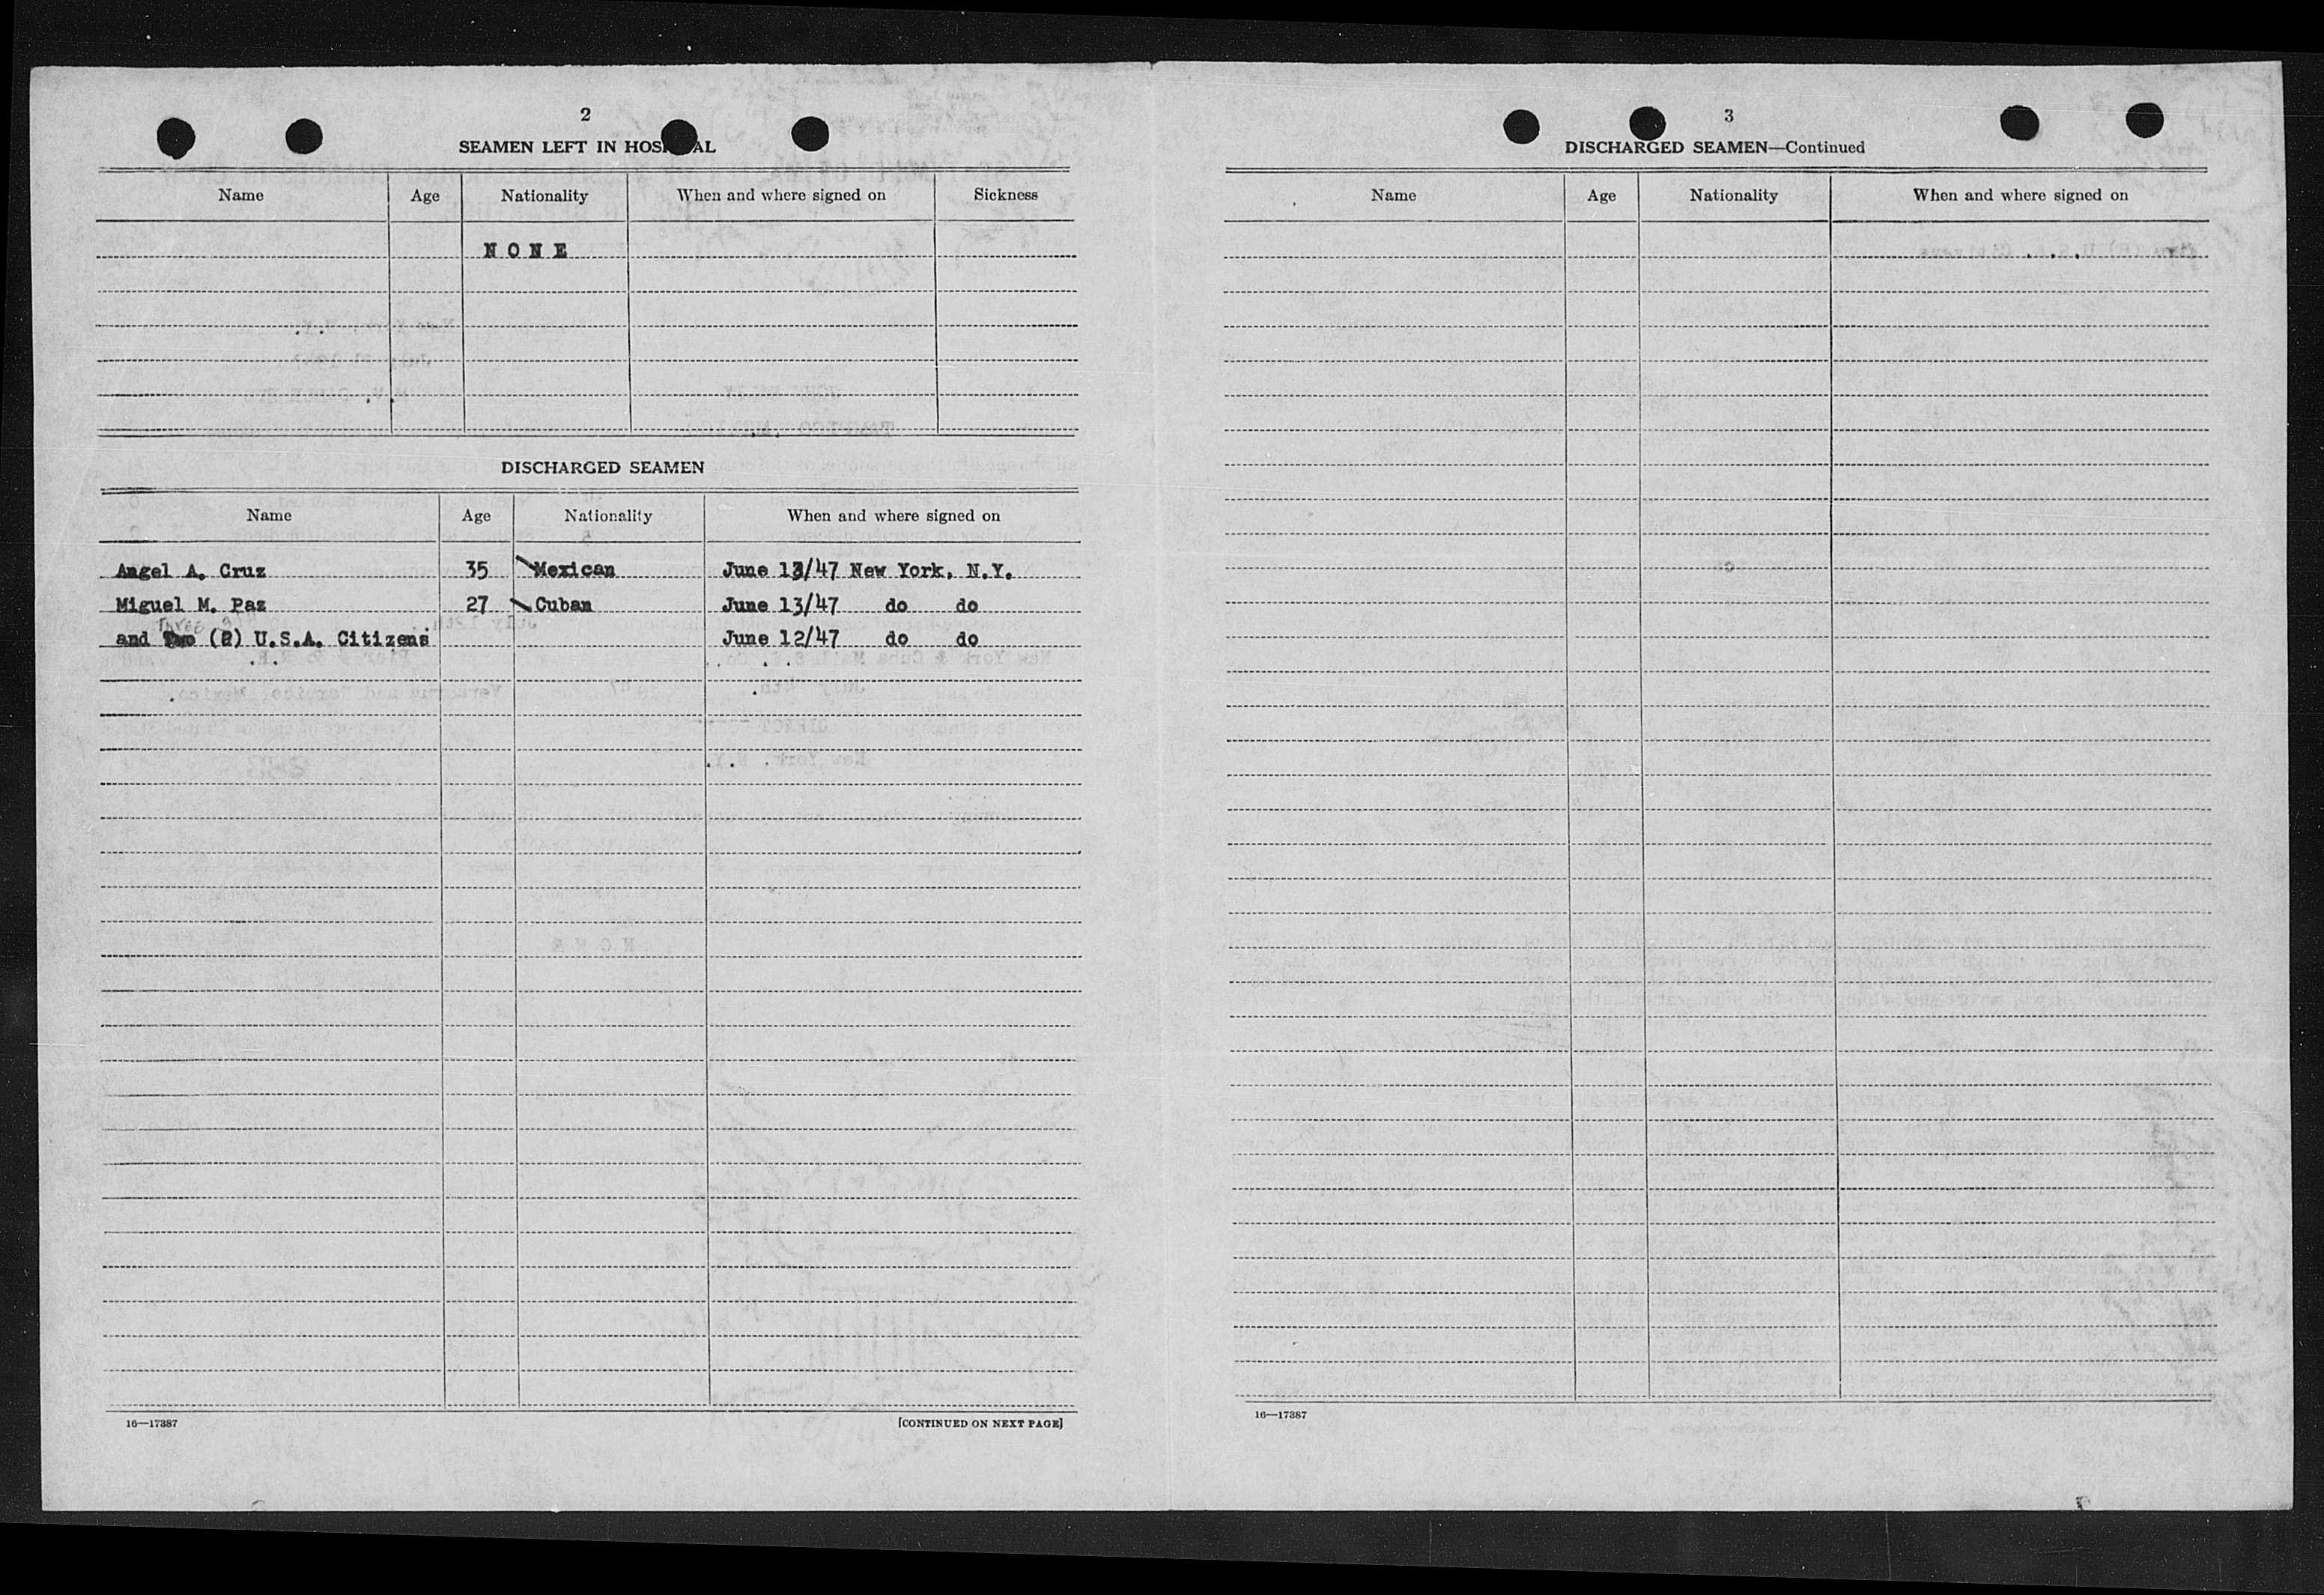 2
SEAMEN LEFT IN HOSPITAL
Name Age Nationality When and where signed on Sickness
NONE
DISCHARGED SEAMEN
Name Age Nationality When and where signed on
Angel A. Cruz 35 Mexican June 13/47 New York, N.Y.
Miguel M. Paz 27 Cuban June 13/47 do do
Three
and Two (2) U.S.A. Citizens June 12/47 do do
16—17387 [CONTINUED ON NEXT PAGE]
3
DISCHARGED SEAMEN—Continued
Name Age Nationality When and where signed on
16—17387